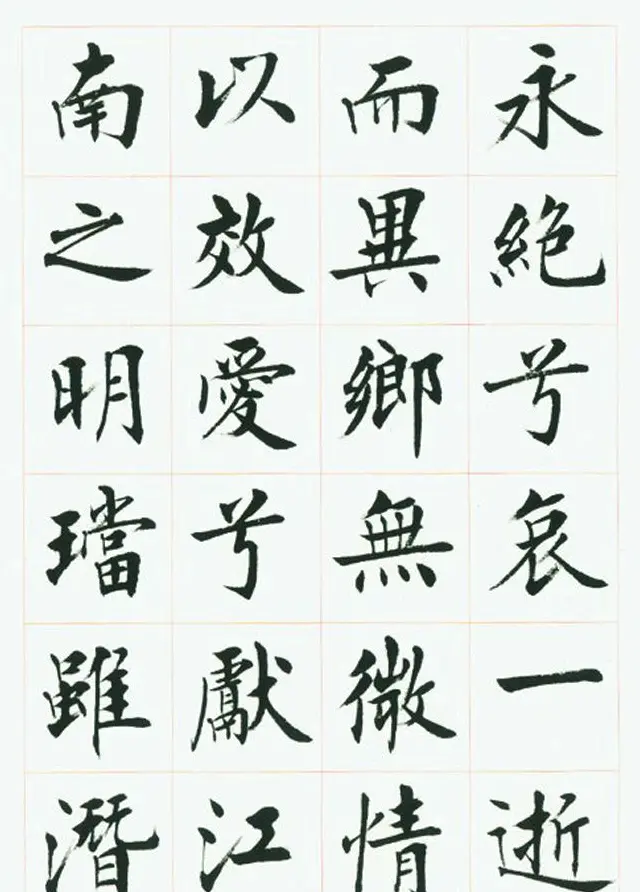 永絶兮哀一逝
而異鄉無微情
以效愛兮獻江
南之明璫雖潛